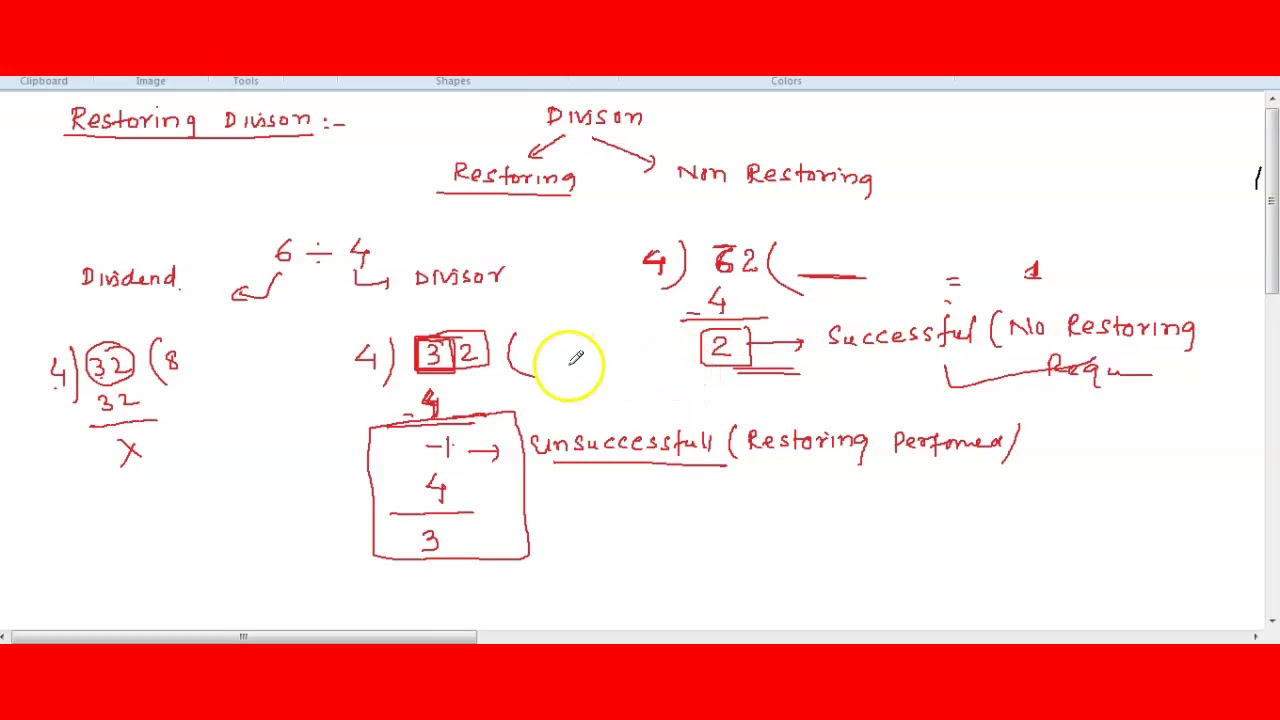 Clipboard Image Tools Shapes Colors
Restoring Divison :-
Divison
Restoring Non Restoring
6 ÷ 4
Dividend. Divisor
4) 32 (8
32
X
4) 32 (
- 4
-1 → Unsuccessfull (Restoring Perfomed)
4
3
4) 62 (
- 4
2 → Successful (No Restoring
Requ
= 1